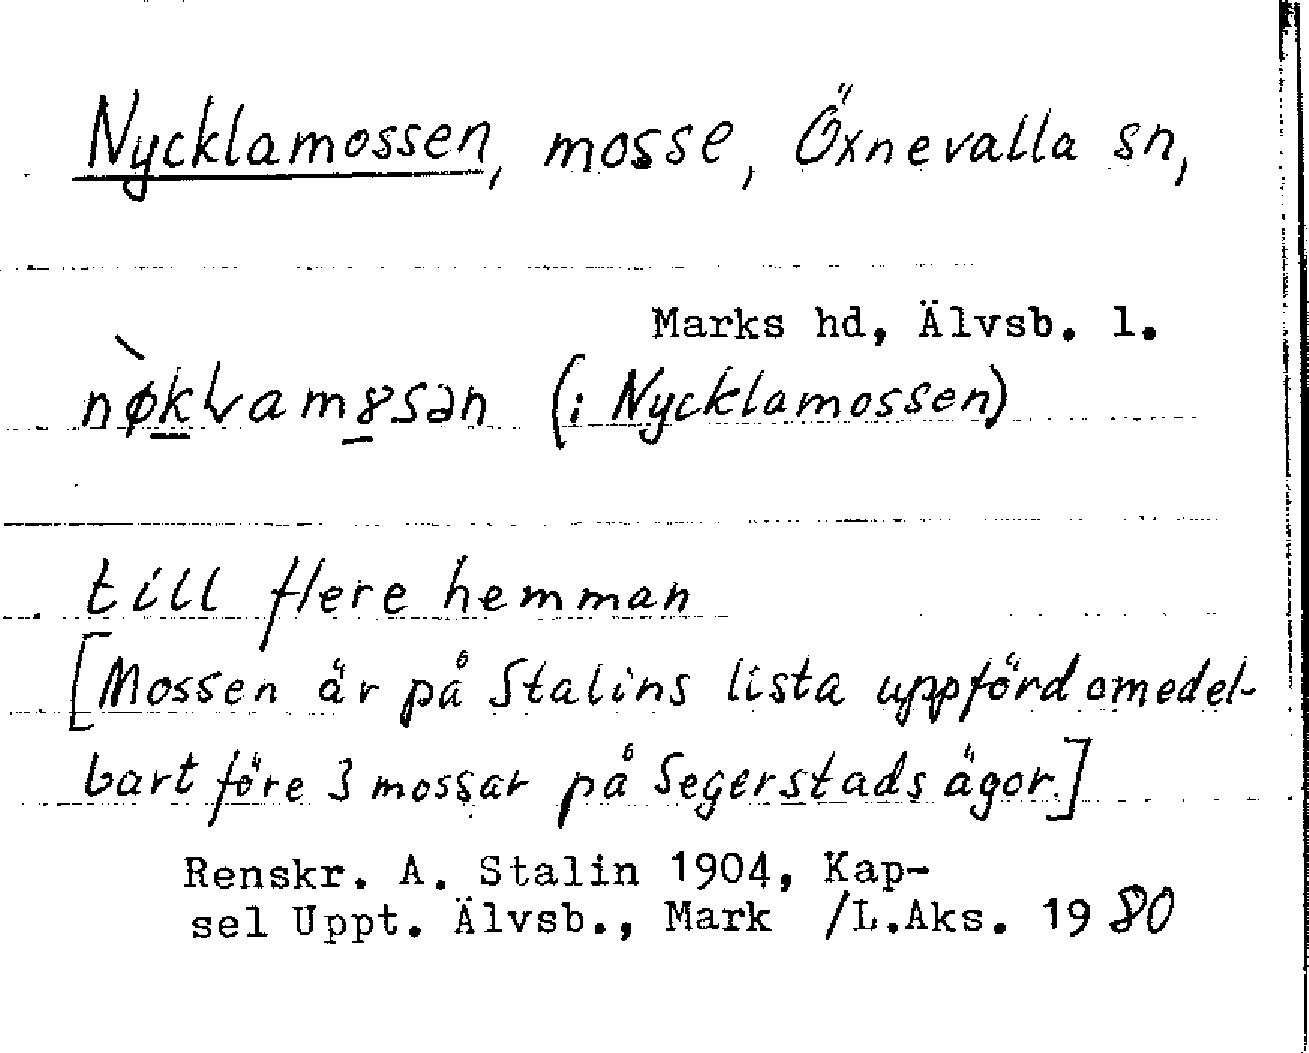 Nycklamossen, mosse, Öxnevalla sn,
Marks hd, Älvsb. l.
(i Nycklamossen)
till flere hemman
[Mossen är på Stalins lista uppförd omedel-
bart före 3 mossar på Segerstads ägor.]
Renskr. A. Stalin 1904, Kap-
sel Uppt. Älvsb., Mark /L.Aks. 1980